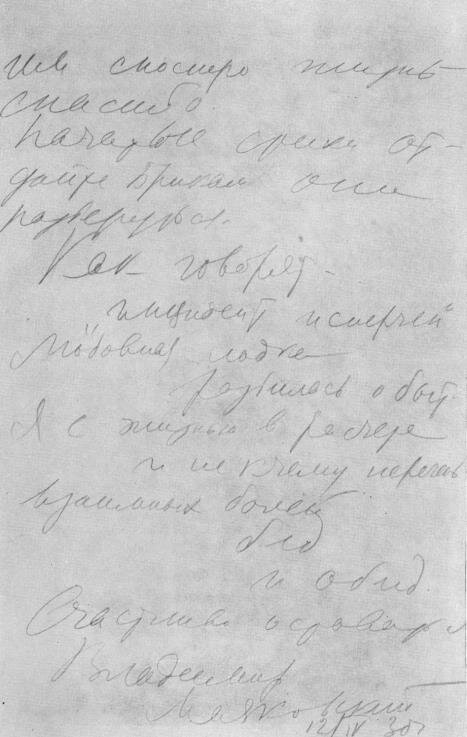 им сносную жизнь —
спасибо.
Начатые стихи от-
дайте Брикам они
разберутся.
Как говорят —
"инцидент исперчен"
Любовная лодка
разбилась о быт.
Я с жизнью в расчете
и не к чему перечень
взаимных болей
бед
и обид.
Счастливо оставаться
Владимир
Маяковский
12/IV 30г